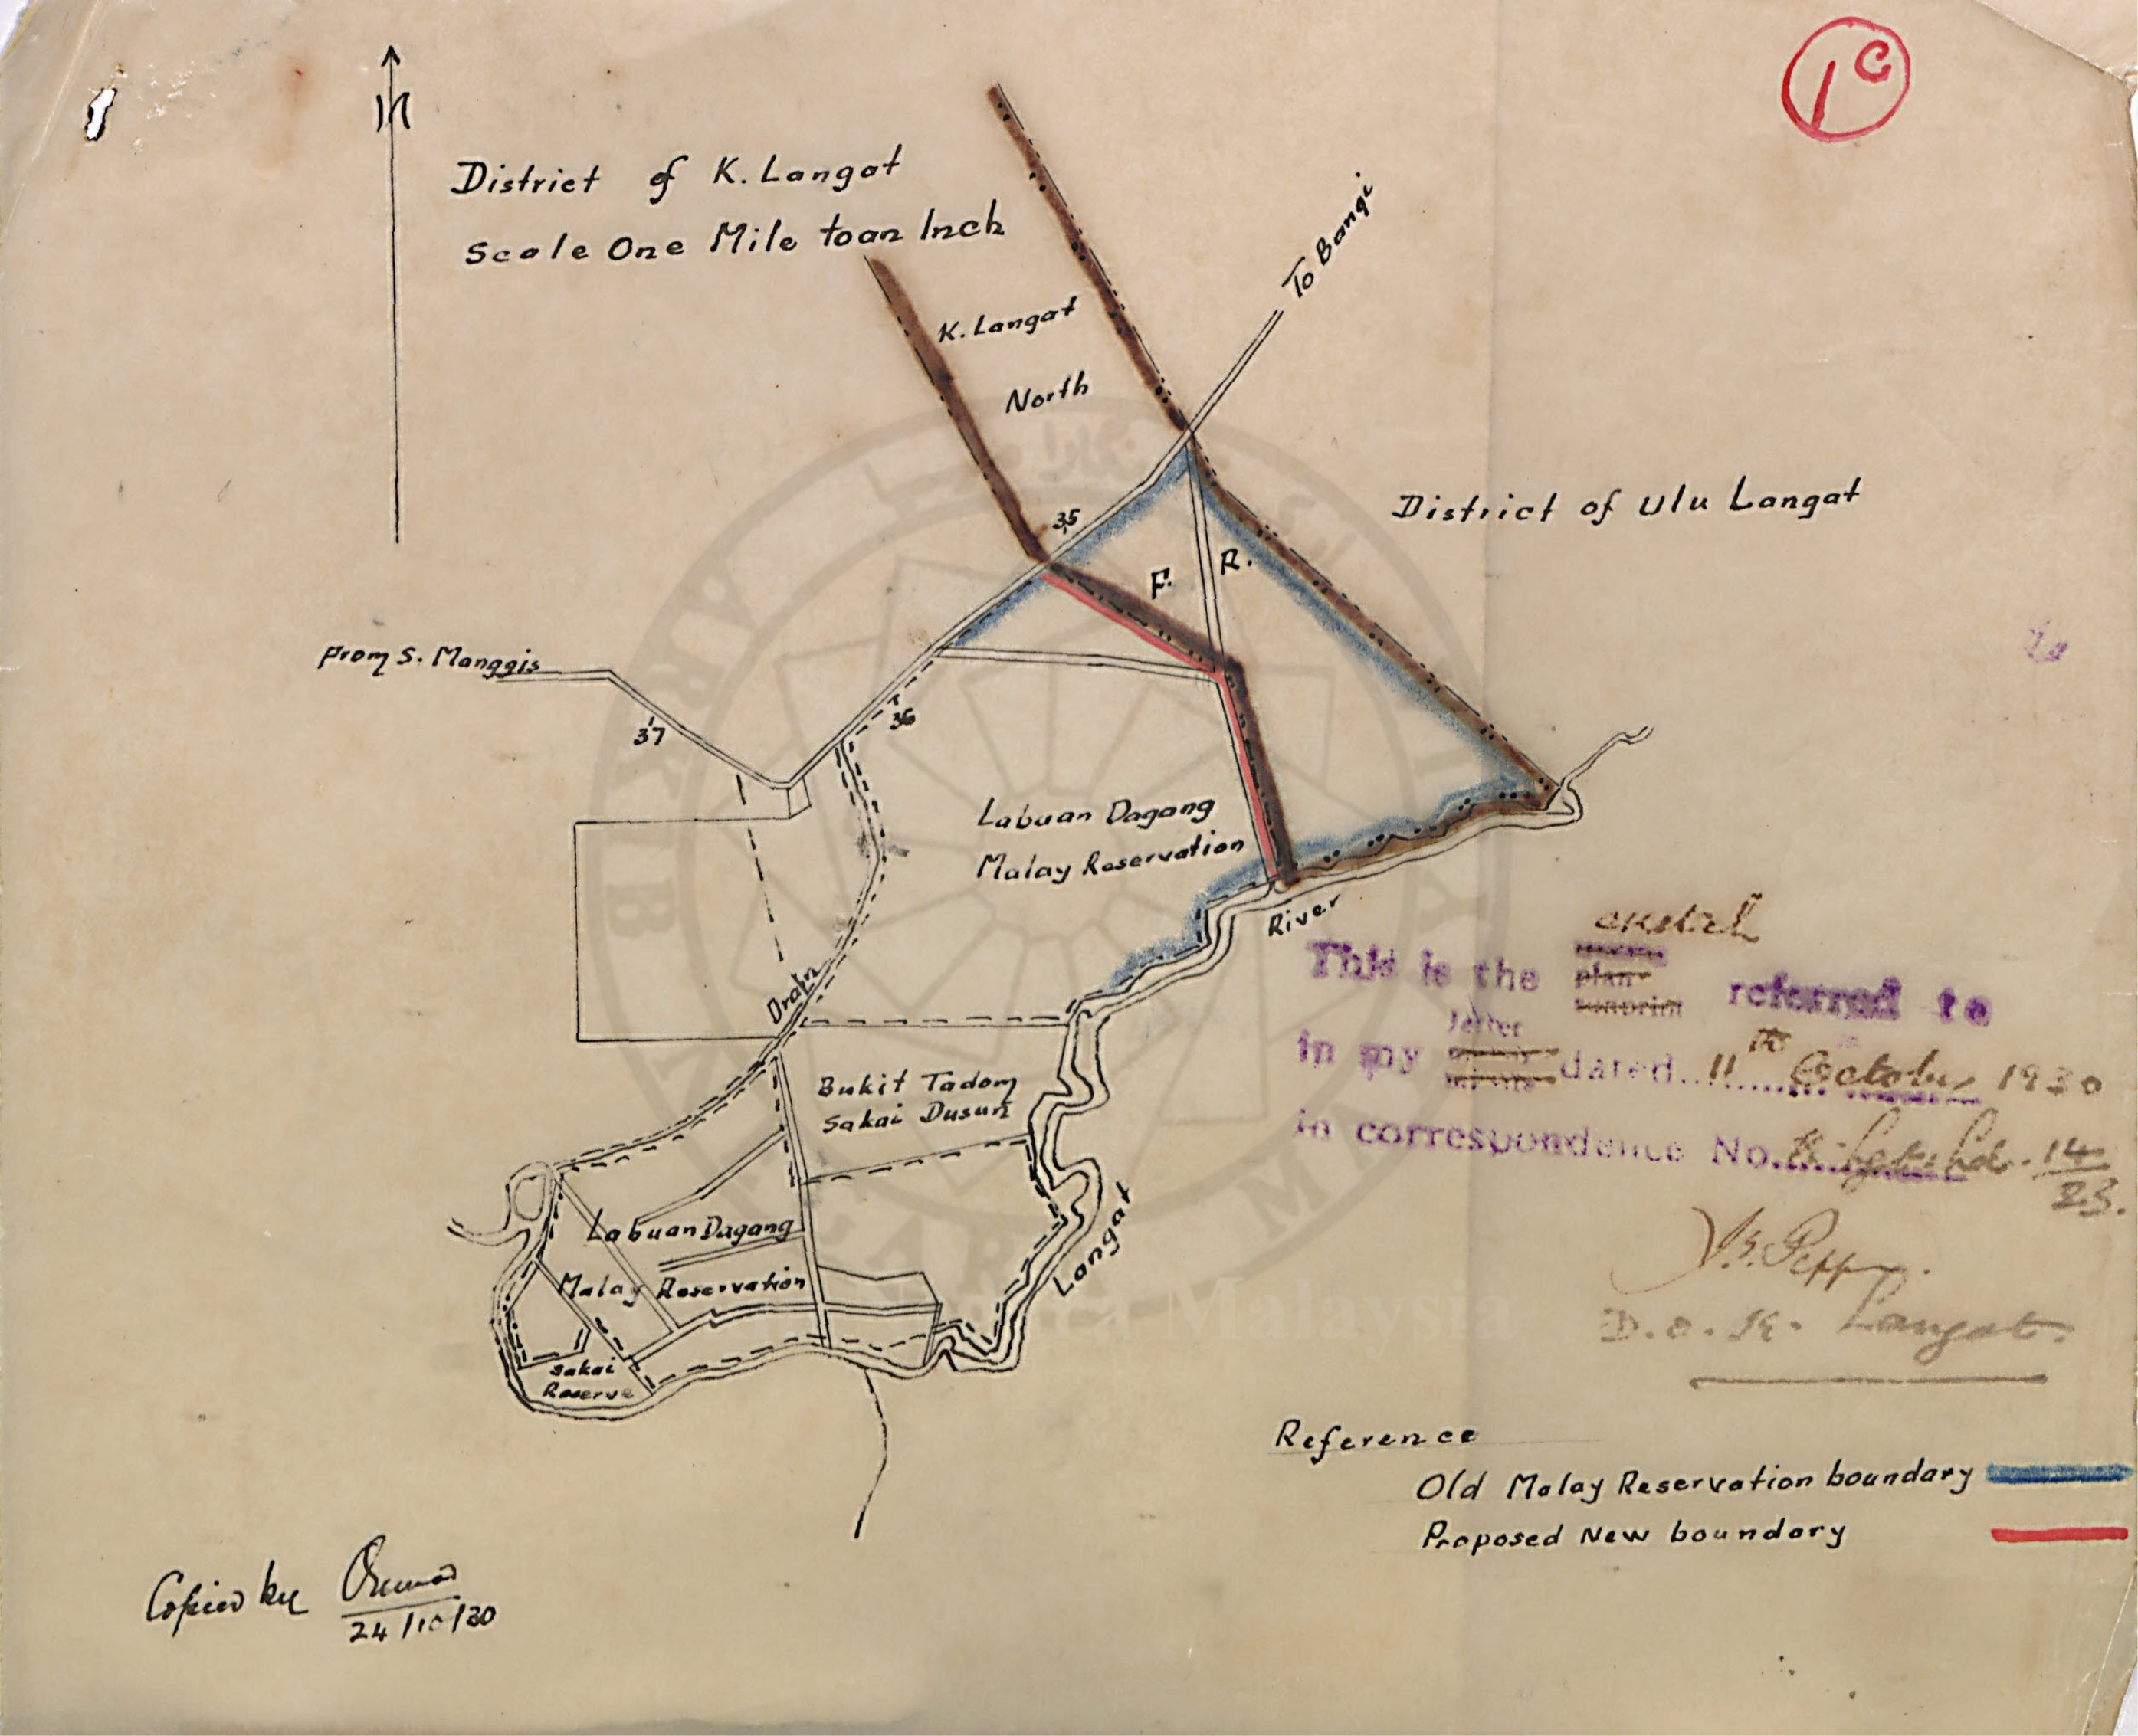 1c
N
District of K. Langat
Scale One Mile to an Inch
To Bangi
K. Langat
North
35
District of Ulu Langat
F. R.
From S. Manggis
36
37
Labuan Dagang
Malay Reservation
River
Drain
Bukit Tadom
Sakai Dusun
Labuan Dagang
Malay Reservation
Langat
Sakai
Reserve
sketch
This is the plan sunprint referred to
letter
in my minute dated 11th October 1930
in correspondence No. 14/23.
D.O. K. Langat.
Reference
Old Malay Reservation boundary
Proposed New boundary
Copied by
24/10/30
Malaysia